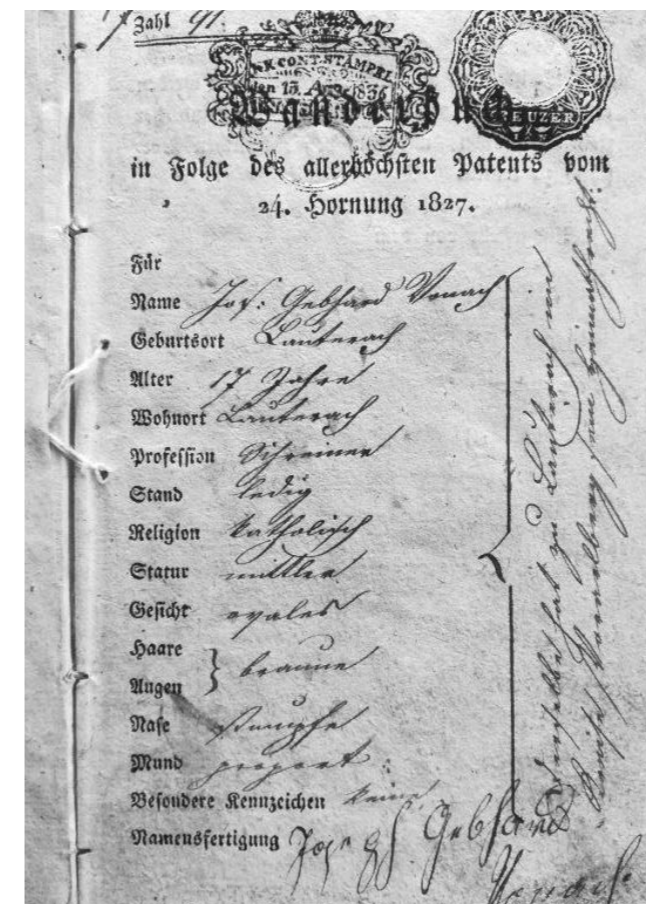 Zahl 91.
K.K. CONT. STÄMPEL
Wien 15. Aug. 1836
KREUZER
Wanderbuch
in Folge des allerhöchsten Patents vom
24. Hornung 1827.
Für
Name Jos: Gebhard Vonach
Geburtsort Lauterach
Alter 17 Jahre
Wohnort Lauterach
Profession Schreiner
Stand ledig
Religion katholisch
Statur mittler
Gesicht ovales
Haare
Augen } braune
Nase stumpfe
Mund proport:
Besondere Kennzeichen keine
Namensfertigung Joseph Gebhard
Vonach
Derselbe hat zu Lauterach im
Kreise Vorarlberg sein Heimathrecht.